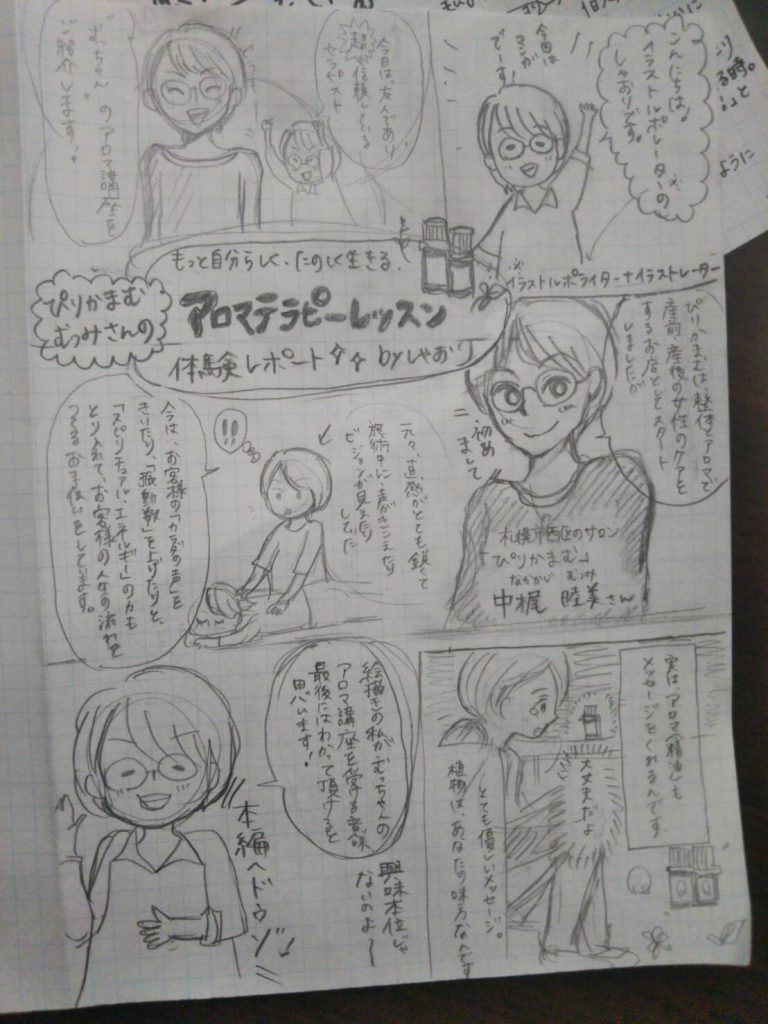 こんにちは!
イラストルポレーター※の
しゃおりです。
今回は
マンガ
でーす!
※イラストルポライター+イラストレーター
今日は、友人であり
超信頼している
セラピスト
"むっちゃん"の
アロマ講座を
ご紹介します!!
もっと自分らしく、たのしく生きる。
ぴりかまむ
むつみさんの
アロマテラピーレッスン
体験レポート☆☆ byしゃおり
ぴりかまむは、整体とアロマで
産前産後の女性のケアを
するお店としてスタート
しましたが
初め
まして
札幌市西区のサロン
「ぴりかまむ」
なかかじ むつみ
中梶 睦美さん
元々、直感がとても鋭くて
施術中に、声がきこえたり
ビジョンが見えたり
してた
!!
今は、お客様の「カラダの声」を
きいたり、「振動数」を上げたりと、
「スピリチュアル・エネルギー」の力も
とり入れて、お客様の人生の流れを
つくるお手伝いをしています。
実は「アロマ(精油)」も
メッセージをくれるんです。
大丈夫だよ
とても優しいメッセージ。
植物は、あなたの味方なんです
絵描きの私が、むっちゃんの
アロマ講座を受ける意味
最後にはわかって頂けると
思います!
興味本位じゃ
ないのよ〜
本編へドウゾ↓